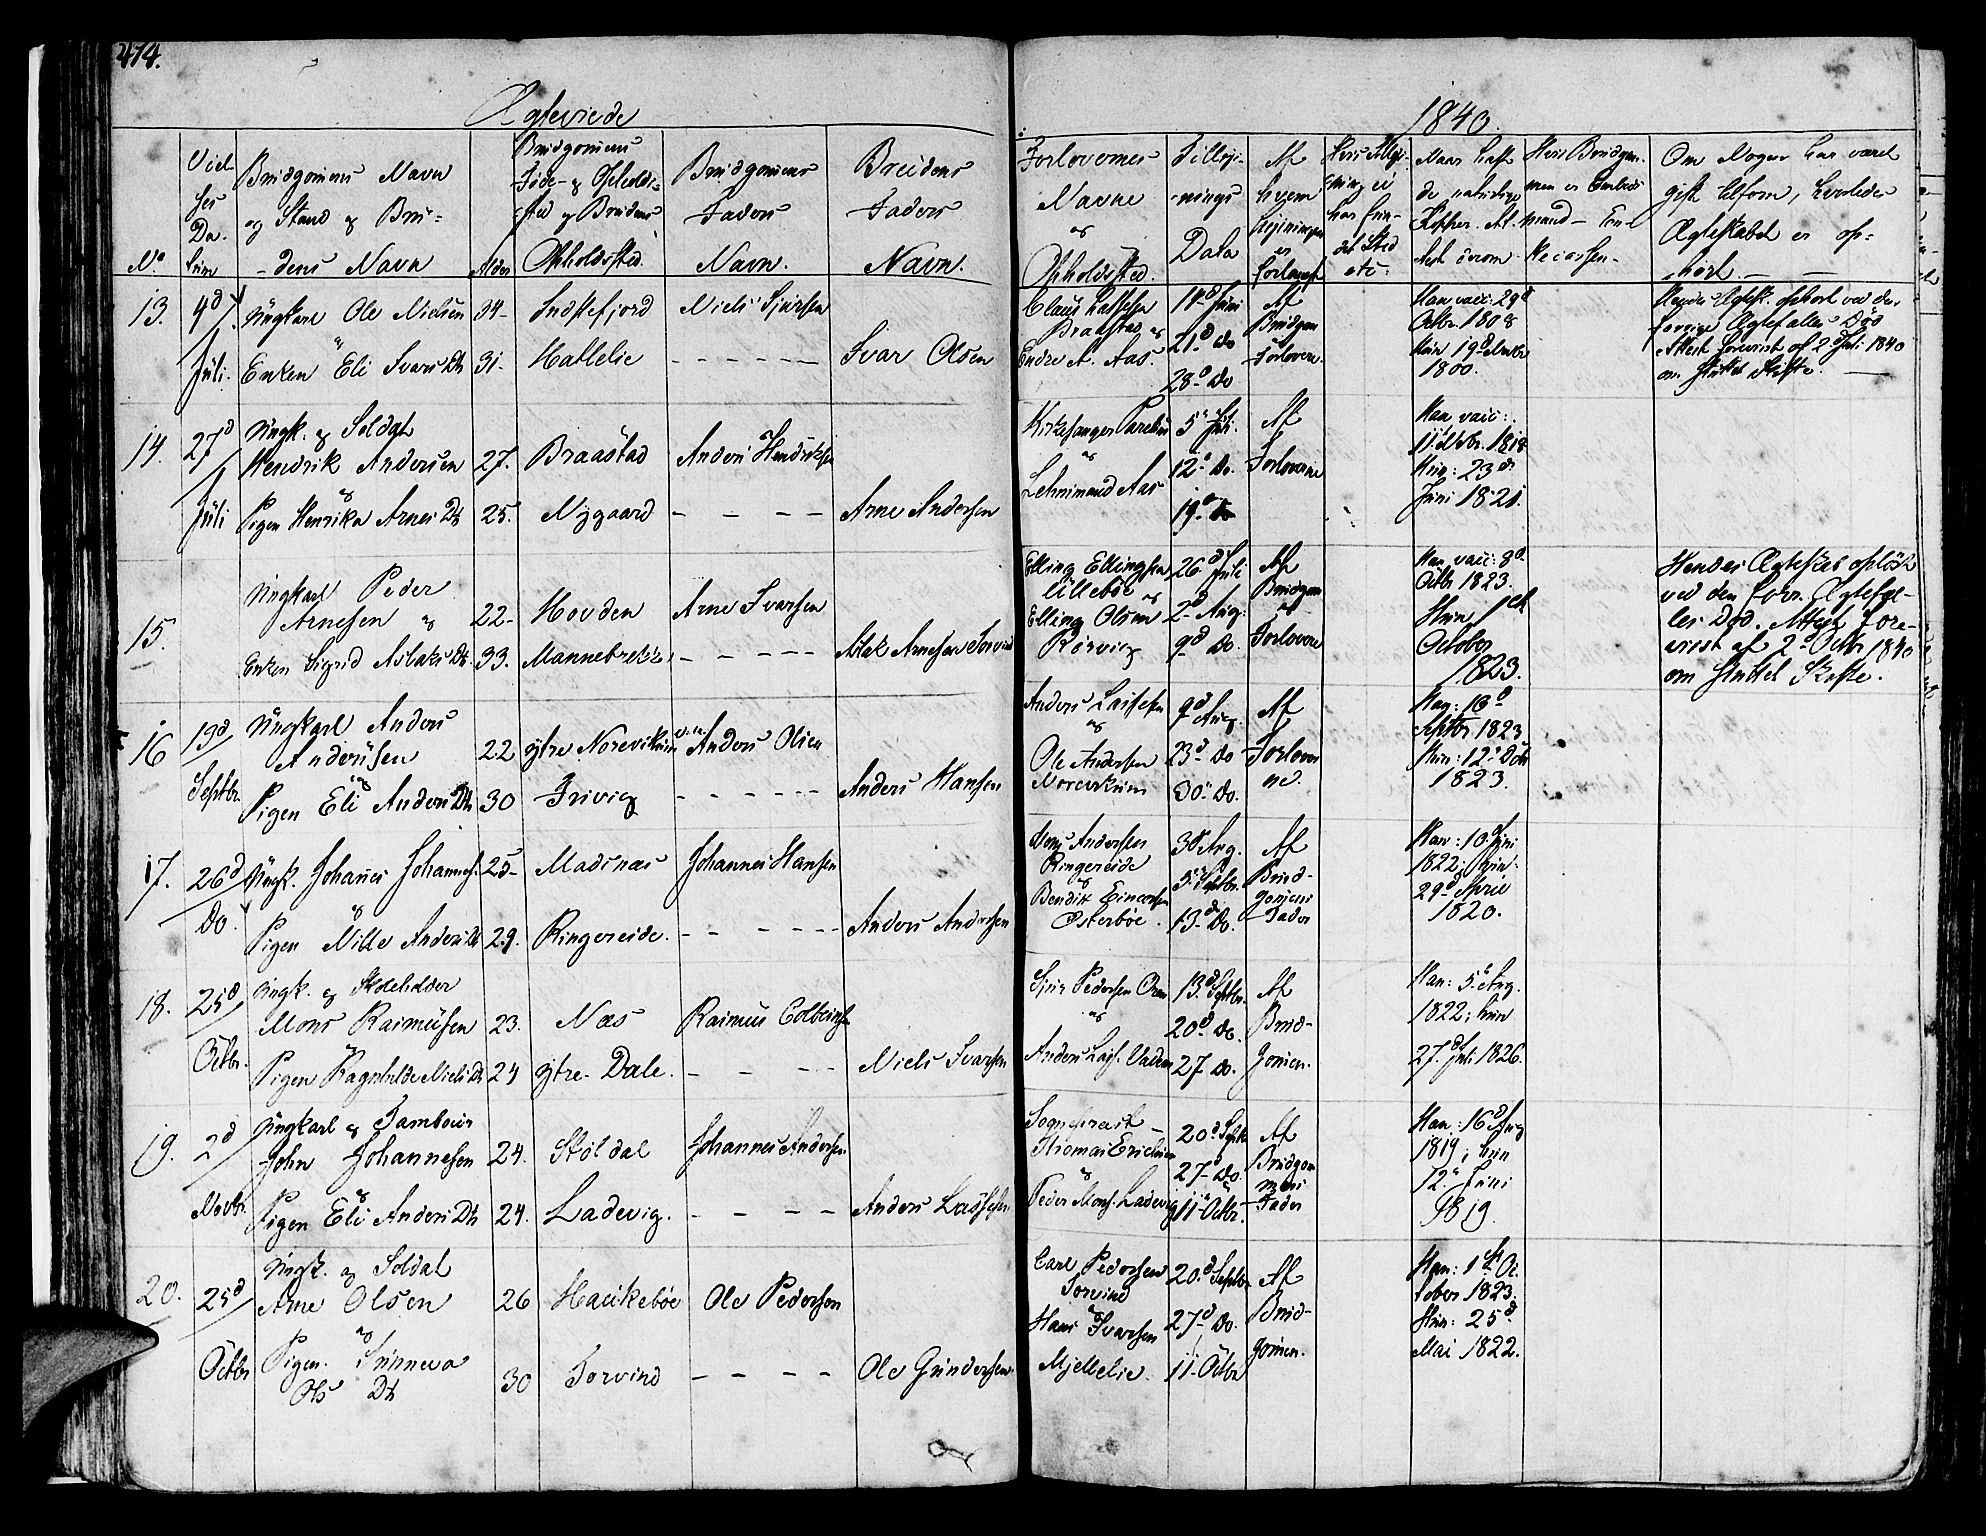 474.
Ægteviede
1840.
No
Viel-
ses
Da-
tum
Brudgomens Navn
og Stand og Bru-
dens Navn
Alder
Brudgomens
Føde- og Opholds-
sted og Brudens
Opholdsted.
Brudgomens
Faders
Navn.
Brudens
Faders
Navn.
Forlovernes
Navne
og
Opholdsted.
Tillysi-
nings
Data
Af
hvem
lysningen
er
forlangt
Hvis Lysi-
ning ei
har fun-
det Sted
etc:
Naar haft
de naturlige
Kopper. At-
test derom
Hvis Brudgom-
men er Enke-
mand
Om Nogen har været
gift tilforn, hvorledes
Ægteskabet er op-
hørt.
13.
4d
Juli.
Ungkarl Ole Nielsen
og
Enken Eli Ivars Dt
34
31.
Indstefjord
Hatlelie
Niels Sjursen
- - - - - -
Ivar Olsen
Claus Lassesen
Braastad og
Endre A. Aas.
14d Juni
21d Do
28d Do
Af
Brudgom
Forlovere.
Han vacc: 29d
Octbr. 1808
Hun 19d
1800.
Hendes Ægtesk. ophørt ved den
forrige Ægtefælles Død
Attest foreviist af 2d Juli 1840
om sluttet Skifte.
14.
27d
Juli
Ungk. og Soldat
Hendrik Andersen
og
Pigen Henrika Arnes Dt
27.
25.
Braastad
Nygaard
Anders Hendriksen
- - - -
Arne Andersen
Kirkesanger Parelius
og
Lehnsmand Aas
5d Juli.
12d Do.
19d Do
Af
Forloverne
Han vacc:
11d Octbr. 1818
Hun: 23de
Juni 1821.
15.
Ungkarl Peder
Arnesen og
Enken Sigrid Aslaks Dt.
22
33.
Hovden
Mannebrekke
Arne Ivarsen
- - - - -
Aslak Arnesen Torvind
Elling Ellingsen
Lillebøe og
Elling Olsen
Rørvig
26d Juli
2d Aug:
9d Do.
Af
Brudgom
og
Forlovere
Han vacc: 8d
Octbr 1823.
Hun 1ste
October
1823.
Hendes Ægteskab opløst
ved den forr. Ægtefæl-
les Død. Attest fore-
viist af 2d Octbr 1840
om sluttet Skifte.
16
19d
Septbr.
Ungkarl Anders
Andersen
og
Pigen Eli Anders Dt
22
30
ytre Norevikum
Trivig
Anders Olsen
- - - - - -
Anders Hansen
Anders Lassesen
og
Ole Andersen
Norevikum
9d Aug.
23d Do
30d Do.
Af
Forlover
ne.
Han: 10d
Septbr 1823
Hun: 12d Octbr
1823.
17.
26d
Do.
Ungk. Johanes Johannes.
og
Pigen Nille Anders Dt
25
29.
Madsnæs
Ringereide.
Johannes Hansen
- - - - - -
Anders Andersen
Mons Andersen
Ringereide
og
Bendik Einersen
Østerbøe.
30d Aug.
5d Septbr.
13de Do.
Af
Brud-
gomens
Fader
Han: 10d Juni
1822; hun:
29d April
1820.
18.
25d
Octbr.
Ungk. og Skoleholder
Mons Rasmusen
og
Pigen Ragnhilde Niels Dt
23.
24
Næs
ytre Dale.
Rasmus Colbeins
- - - -
Niels Ivarsen
Sjur Pedersen Oren
og
Anders Lass. Vadem
13d Septbr.
20d Do.
27 Do.
Af
Brud-
gomen.
Han: 5d Aug.
1822; hun
27d Juli 1826.
19.
2d
Novbr.
Ungkarl og Tambour
John Johannesen
og
Pigen Eli Anders Dt
24.
24.
Støldal
Ladevig.
Johannes Andersen
- - - -
Anders Lassesen
Sogneprast
Thomas Erichsen
og
Peder Mons. Ladevig
20d Septbr
27d Do.
11d Octbr.
Af
Brudgom
mens
Fader
Han: 16d Aug
1819; hun
12d Juni
1819.
20.
25d
Octbr
Ungk. og Soldat
Arne Olsen
og
Pigen Sünneva
Ols Dt
26
30
Haukebøe
Torvind
Ole Pedersen
- - - -
Ole Gundersen
Carl Pedersen
Torvind
og
Hans Ivarsen
Mjellelie.
20d Septbr
27d Do.
11 Octbr
Af
Brud-
gomen.
Han: 1ste Oc-
tober 1823.
Hun: 25d
Mai 1822.